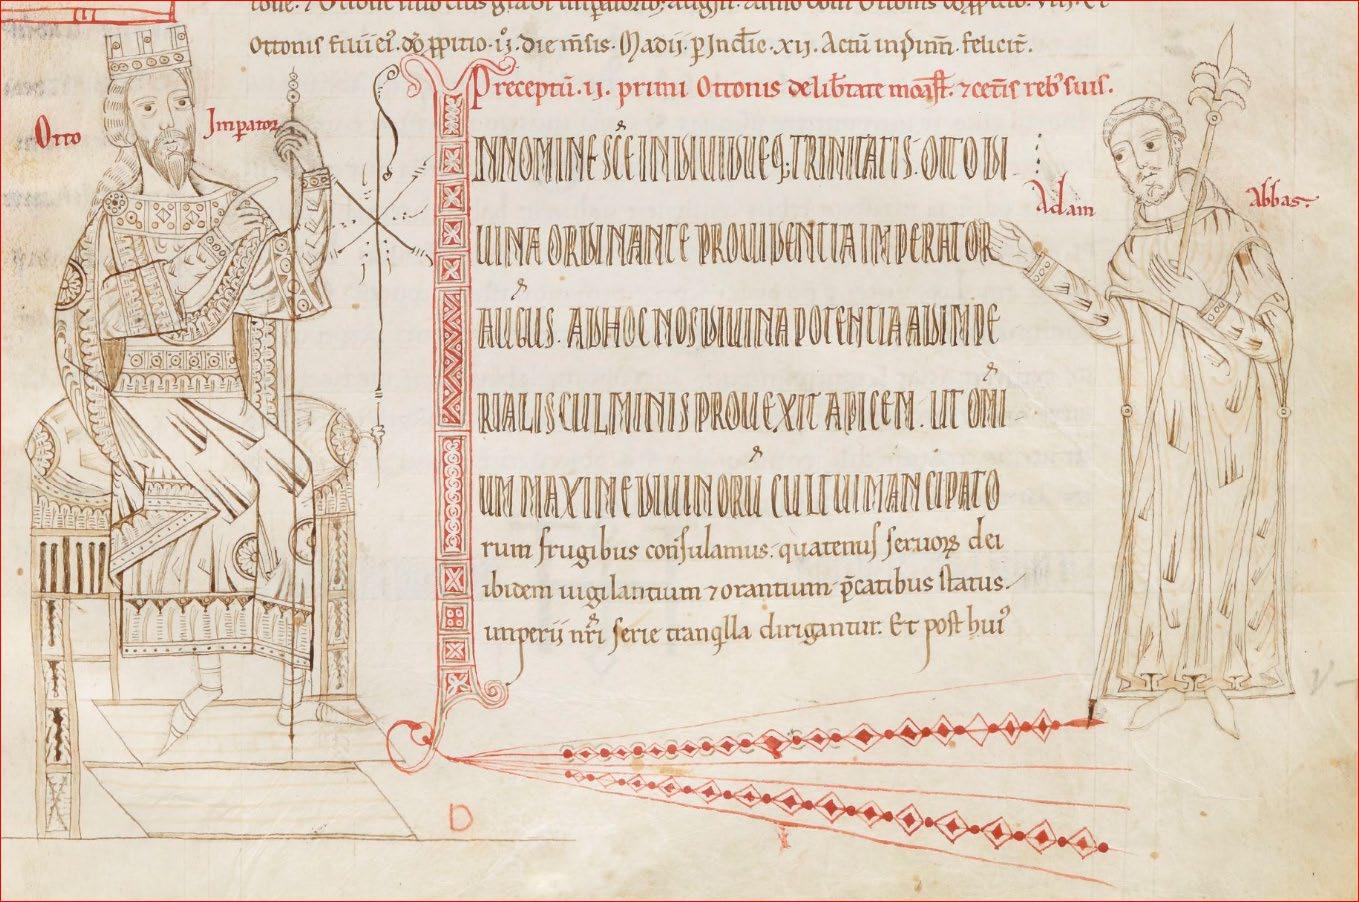 Ottonis filii ei᷒. do ꝑpitio. ij. die m̄sis. Madii. ꝑ Indictiē. xii. Actū inpinn̄. felicit̄.
Preceptū. ij. primi Ottonis de lib̄tate mōast̄. ⁊ cet̄is reb᷒ suis.
Otto Imp̄ator
INNOMINE SC̄E INDIVIDUEQ; TRINITATIS. OTTO DI
Adam Abbas.
UINA ORDINANTE PROUIDENTIA IMPERATOR
AUGUS. ADHOC NOS DIUINA POTENTIA ADIMPE
RIALIS CULMINIS PROUEXIT APICEM. UT OM̄I
UM MAXIME DIUINORŪ CULTUI MANCIPATO
rum frugibus consulamus. quatenus seruoꝝ dei
ibidem uigilantium ⁊ orantium p̄catibus status
imperii nr̄i serie tranqlla dirigantur. Et post hui᷒
D